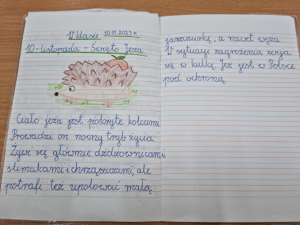 W klasie 10.11.2023 r.
10-listopada - Święto Jeża
Ciało jeża jest pokryte kolcami.
Prowadzi on nocny tryb życia.
Żywi się głównie dżdżownicami,
ślimakami i chrząszczami, ale
potrafi też upolować małą
jaszczurkę, a nawet węża.
W sytuacji zagrożenia zwija
się w kulkę. Jeż jest w Polsce
pod ochroną.